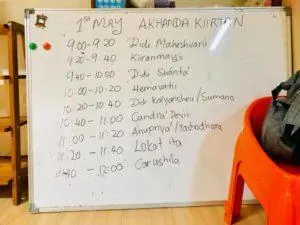 1st MAY AKHANDA KIIRTAN
9:00-9:20 Didi Maheshvarii
9:20-9:40 Kiiranmayii
9:40-10:00 Didi Shánta
10:00-10:20 Hemavatii
10:20-10:40 Didi Kalyanshrii/Sumana
10:40-11:00 Candra Devii
11:00-11:20 Anupriya/Yashodhara
11:20-11:40 Lokatiita
11:40-12:00 Carushila